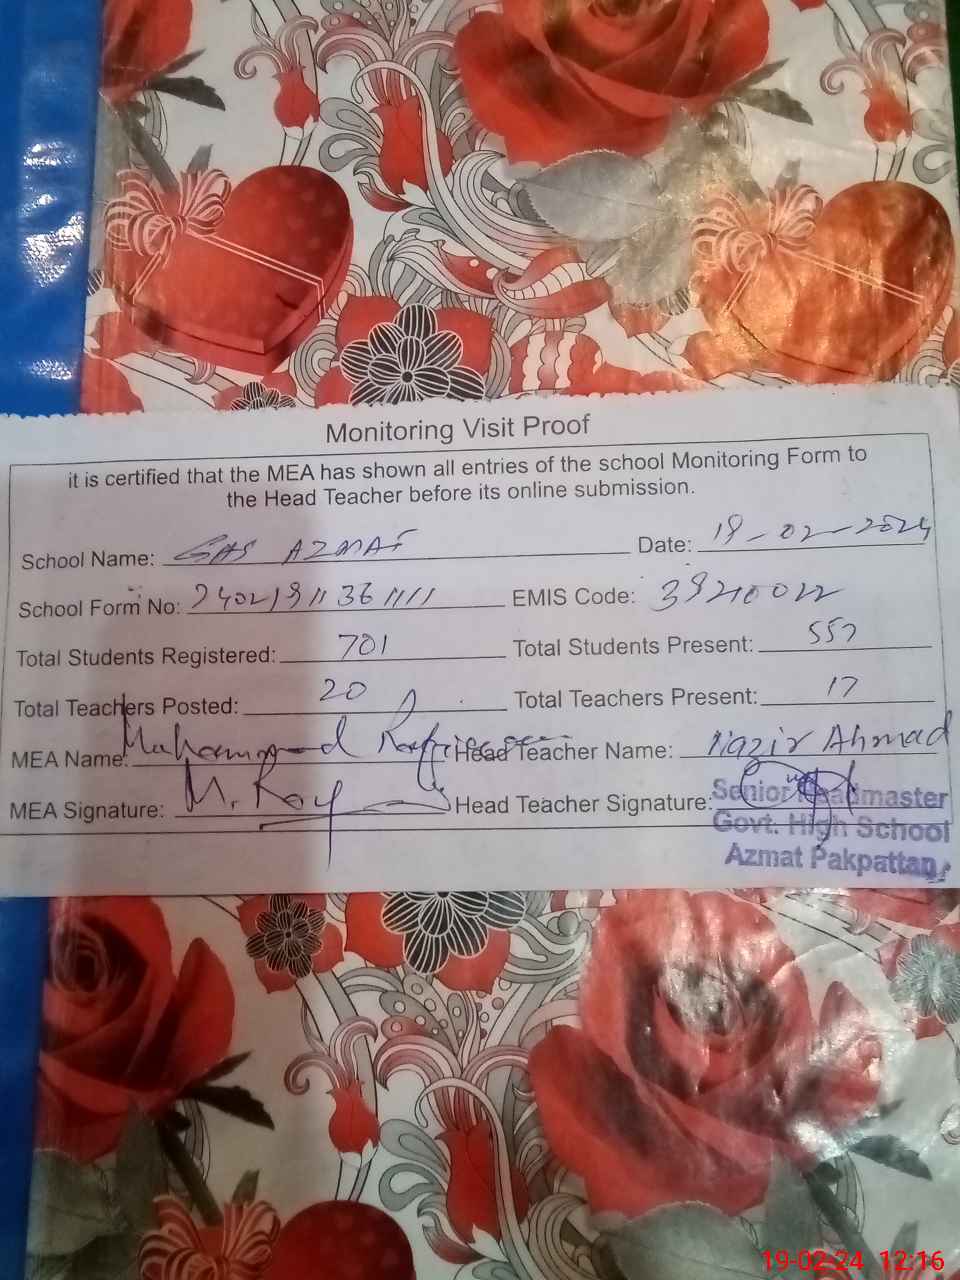 Monitoring Visit Proof
it is certified that the MEA has shown all entries of the school Monitoring Form to
the Head Teacher before its online submission.
School Name: GHS AZMAT Date: 19-02-2024
School Form No: EMIS Code: 39210022
Total Students Registered: 701 Total Students Present: 557
Total Teachers Posted: 20 Total Teachers Present: 17
MEA Name: Muhammad Head Teacher Name: Nazir Ahmad
MEA Signature: Head Teacher Signature:
Senior Headmaster
Govt. High School
Azmat Pakpattan
19-02-24 12:16